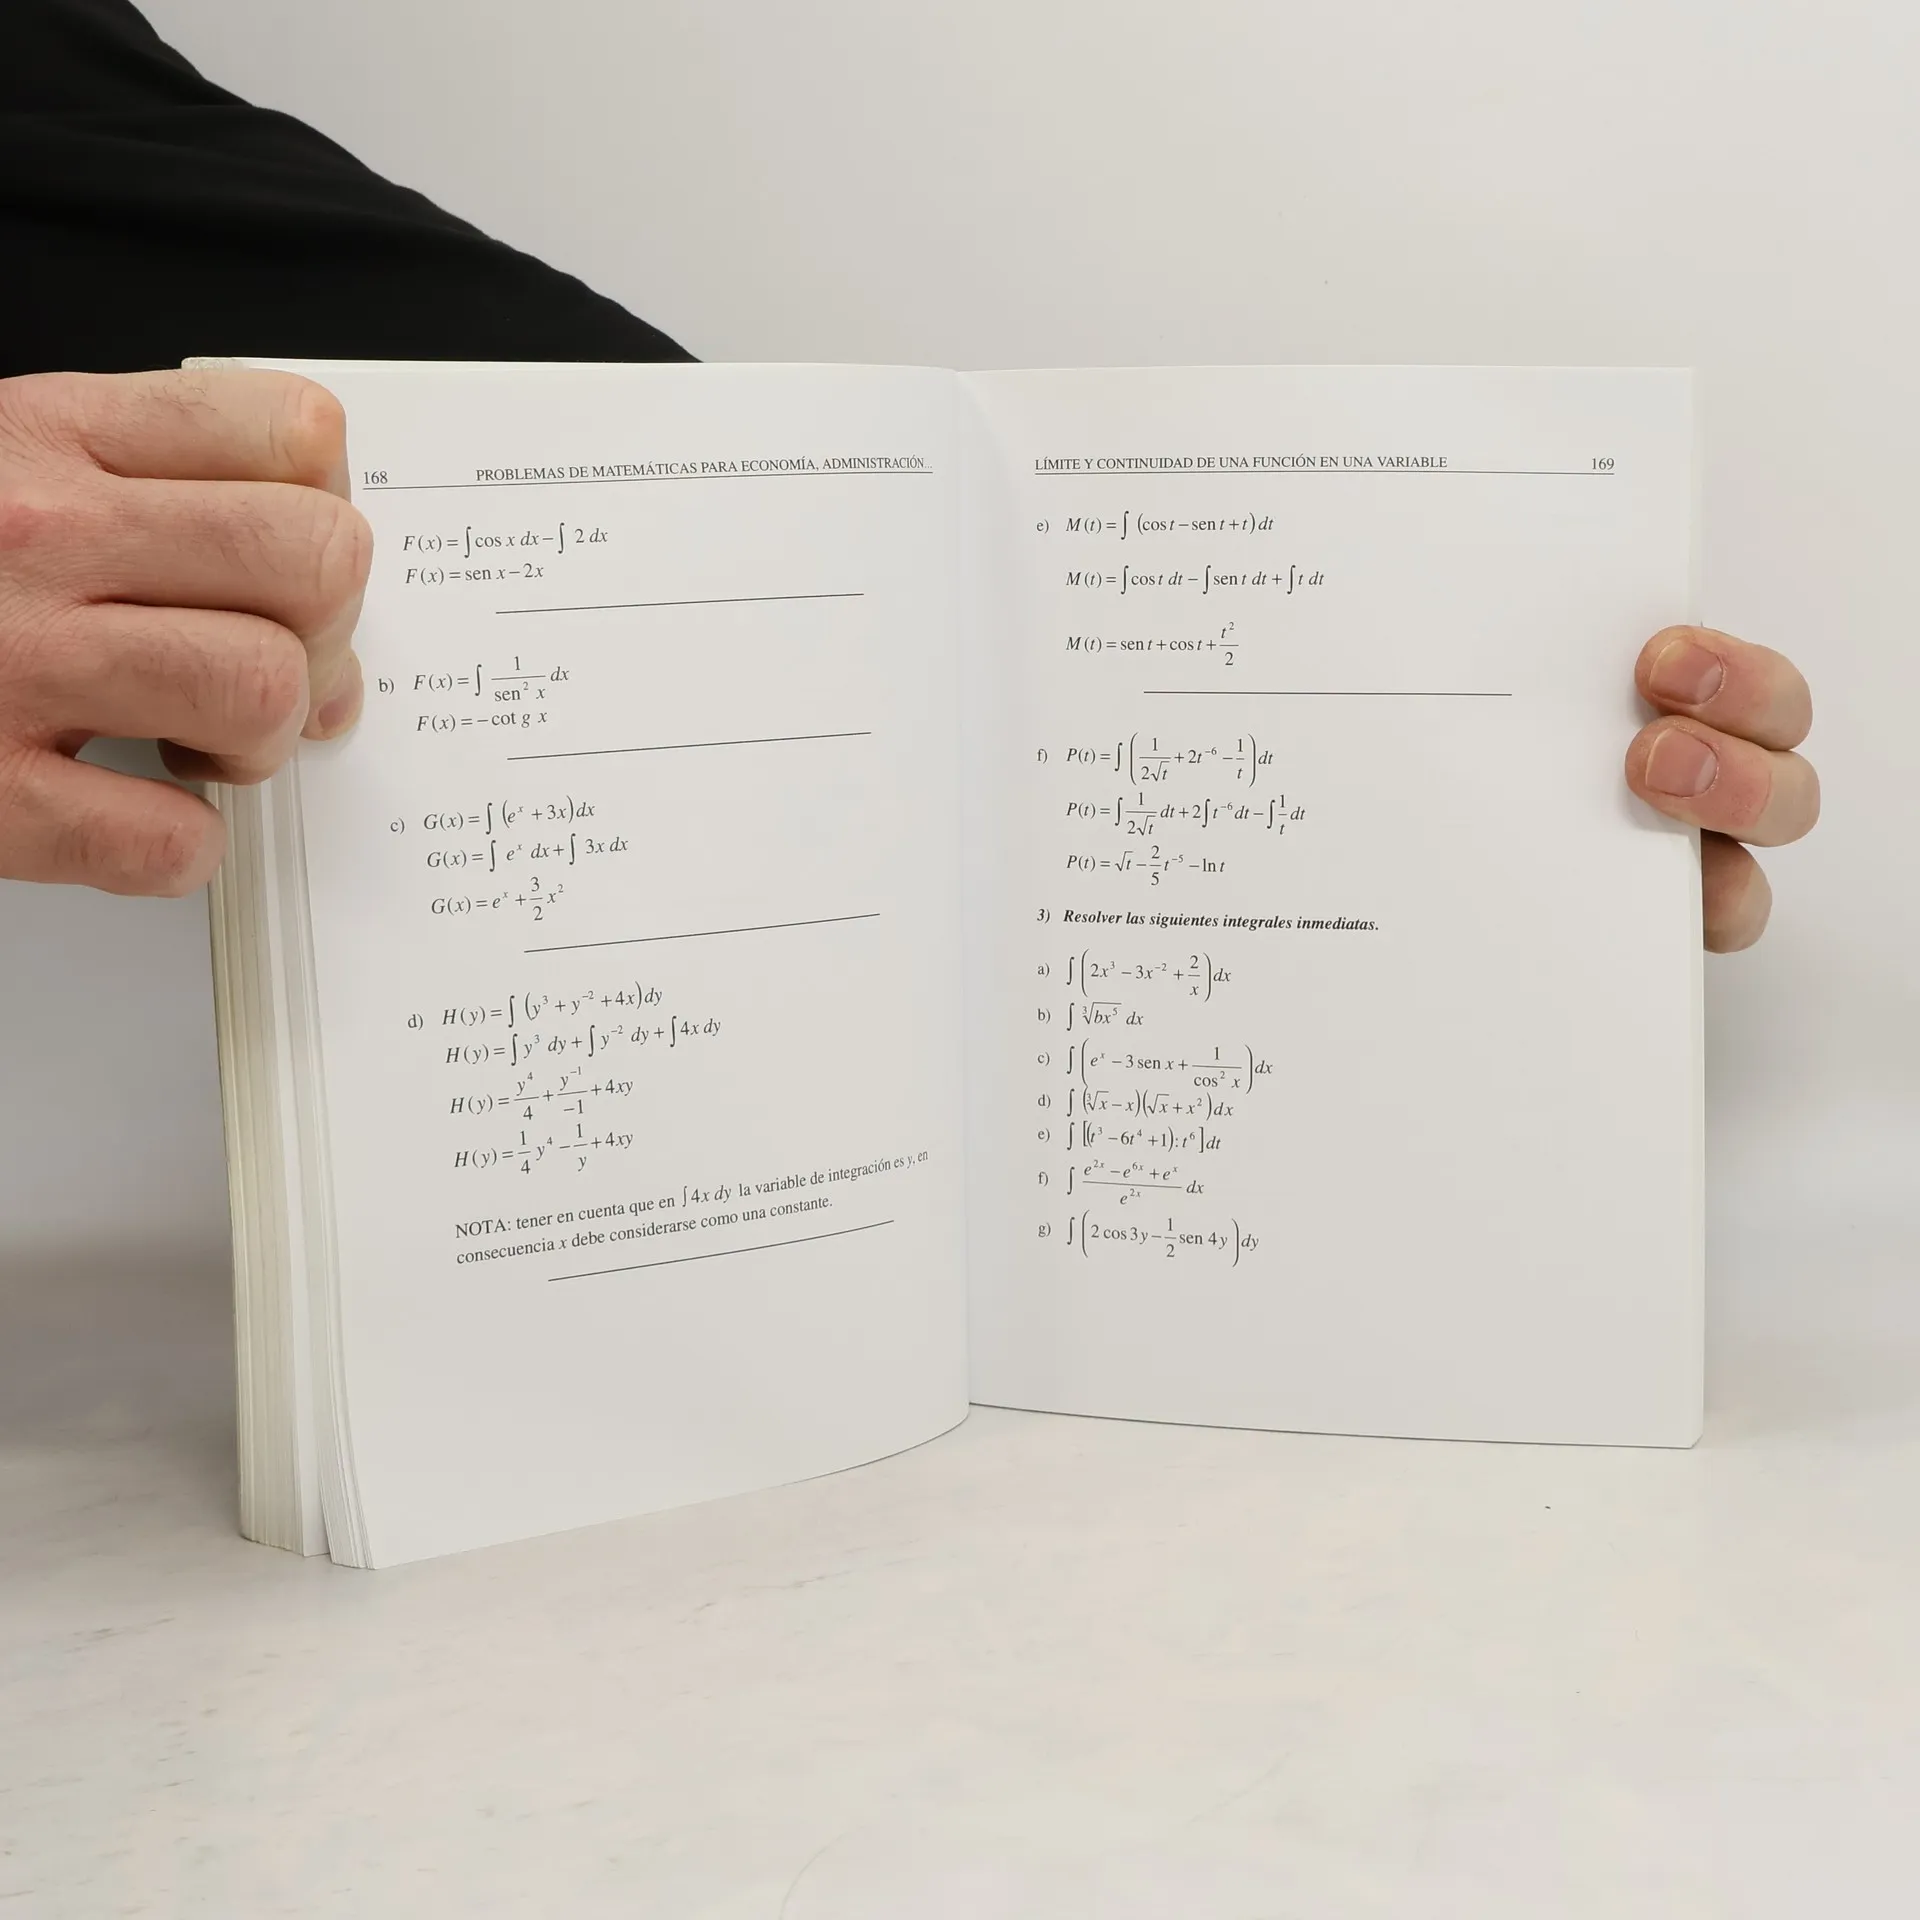 168 PROBLEMAS DE MATEMÁTICAS PARA ECONOMÍA, ADMINISTRACIÓN...
F(x) = ∫cos x dx − ∫ 2 dx
F(x) = sen x − 2x
b) F(x) = ∫ 1/(sen² x) dx
F(x) = − cot g x
c) G(x) = ∫ (eˣ + 3x)dx
G(x) = ∫ eˣ dx + ∫ 3x dx
G(x) = eˣ + 3/2 x²
d) H(y) = ∫ (y³ + y⁻² + 4x)dy
H(y) = ∫ y³ dy + ∫ y⁻² dy + ∫ 4x dy
H(y) = y⁴/4 + y⁻¹/−1 + 4xy
H(y) = 1/4 y⁴ − 1/y + 4xy
NOTA: tener en cuenta que en ∫ 4x dy la variable de integración es y, en
consecuencia x debe considerarse como una constante.
LÍMITE Y CONTINUIDAD DE UNA FUNCIÓN EN UNA VARIABLE 169
e) M(t) = ∫ (cos t − sen t + t) dt
M(t) = ∫cos t dt − ∫sen t dt + ∫t dt
M(t) = sen t + cos t + t²/2
f) P(t) = ∫ (1/(2√t) + 2t⁻⁶ − 1/t) dt
P(t) = ∫ 1/(2√t) dt + 2∫t⁻⁶ dt − ∫ 1/t dt
P(t) = √t − 2/5 t⁻⁵ − ln t
3) Resolver las siguientes integrales inmediatas.
a) ∫ (2x³ − 3x⁻² + 2/x) dx
b) ∫ ∛(bx⁵) dx
c) ∫ (eˣ − 3 sen x + 1/(cos² x)) dx
d) ∫ (∛x − x)(√x + x²)dx
e) ∫ [(t³ − 6t⁴ + 1): t⁶] dt
f) ∫ (e²ˣ − e⁶ˣ + eˣ)/e²ˣ dx
g) ∫ (2 cos 3y − 1/2 sen 4y) dy